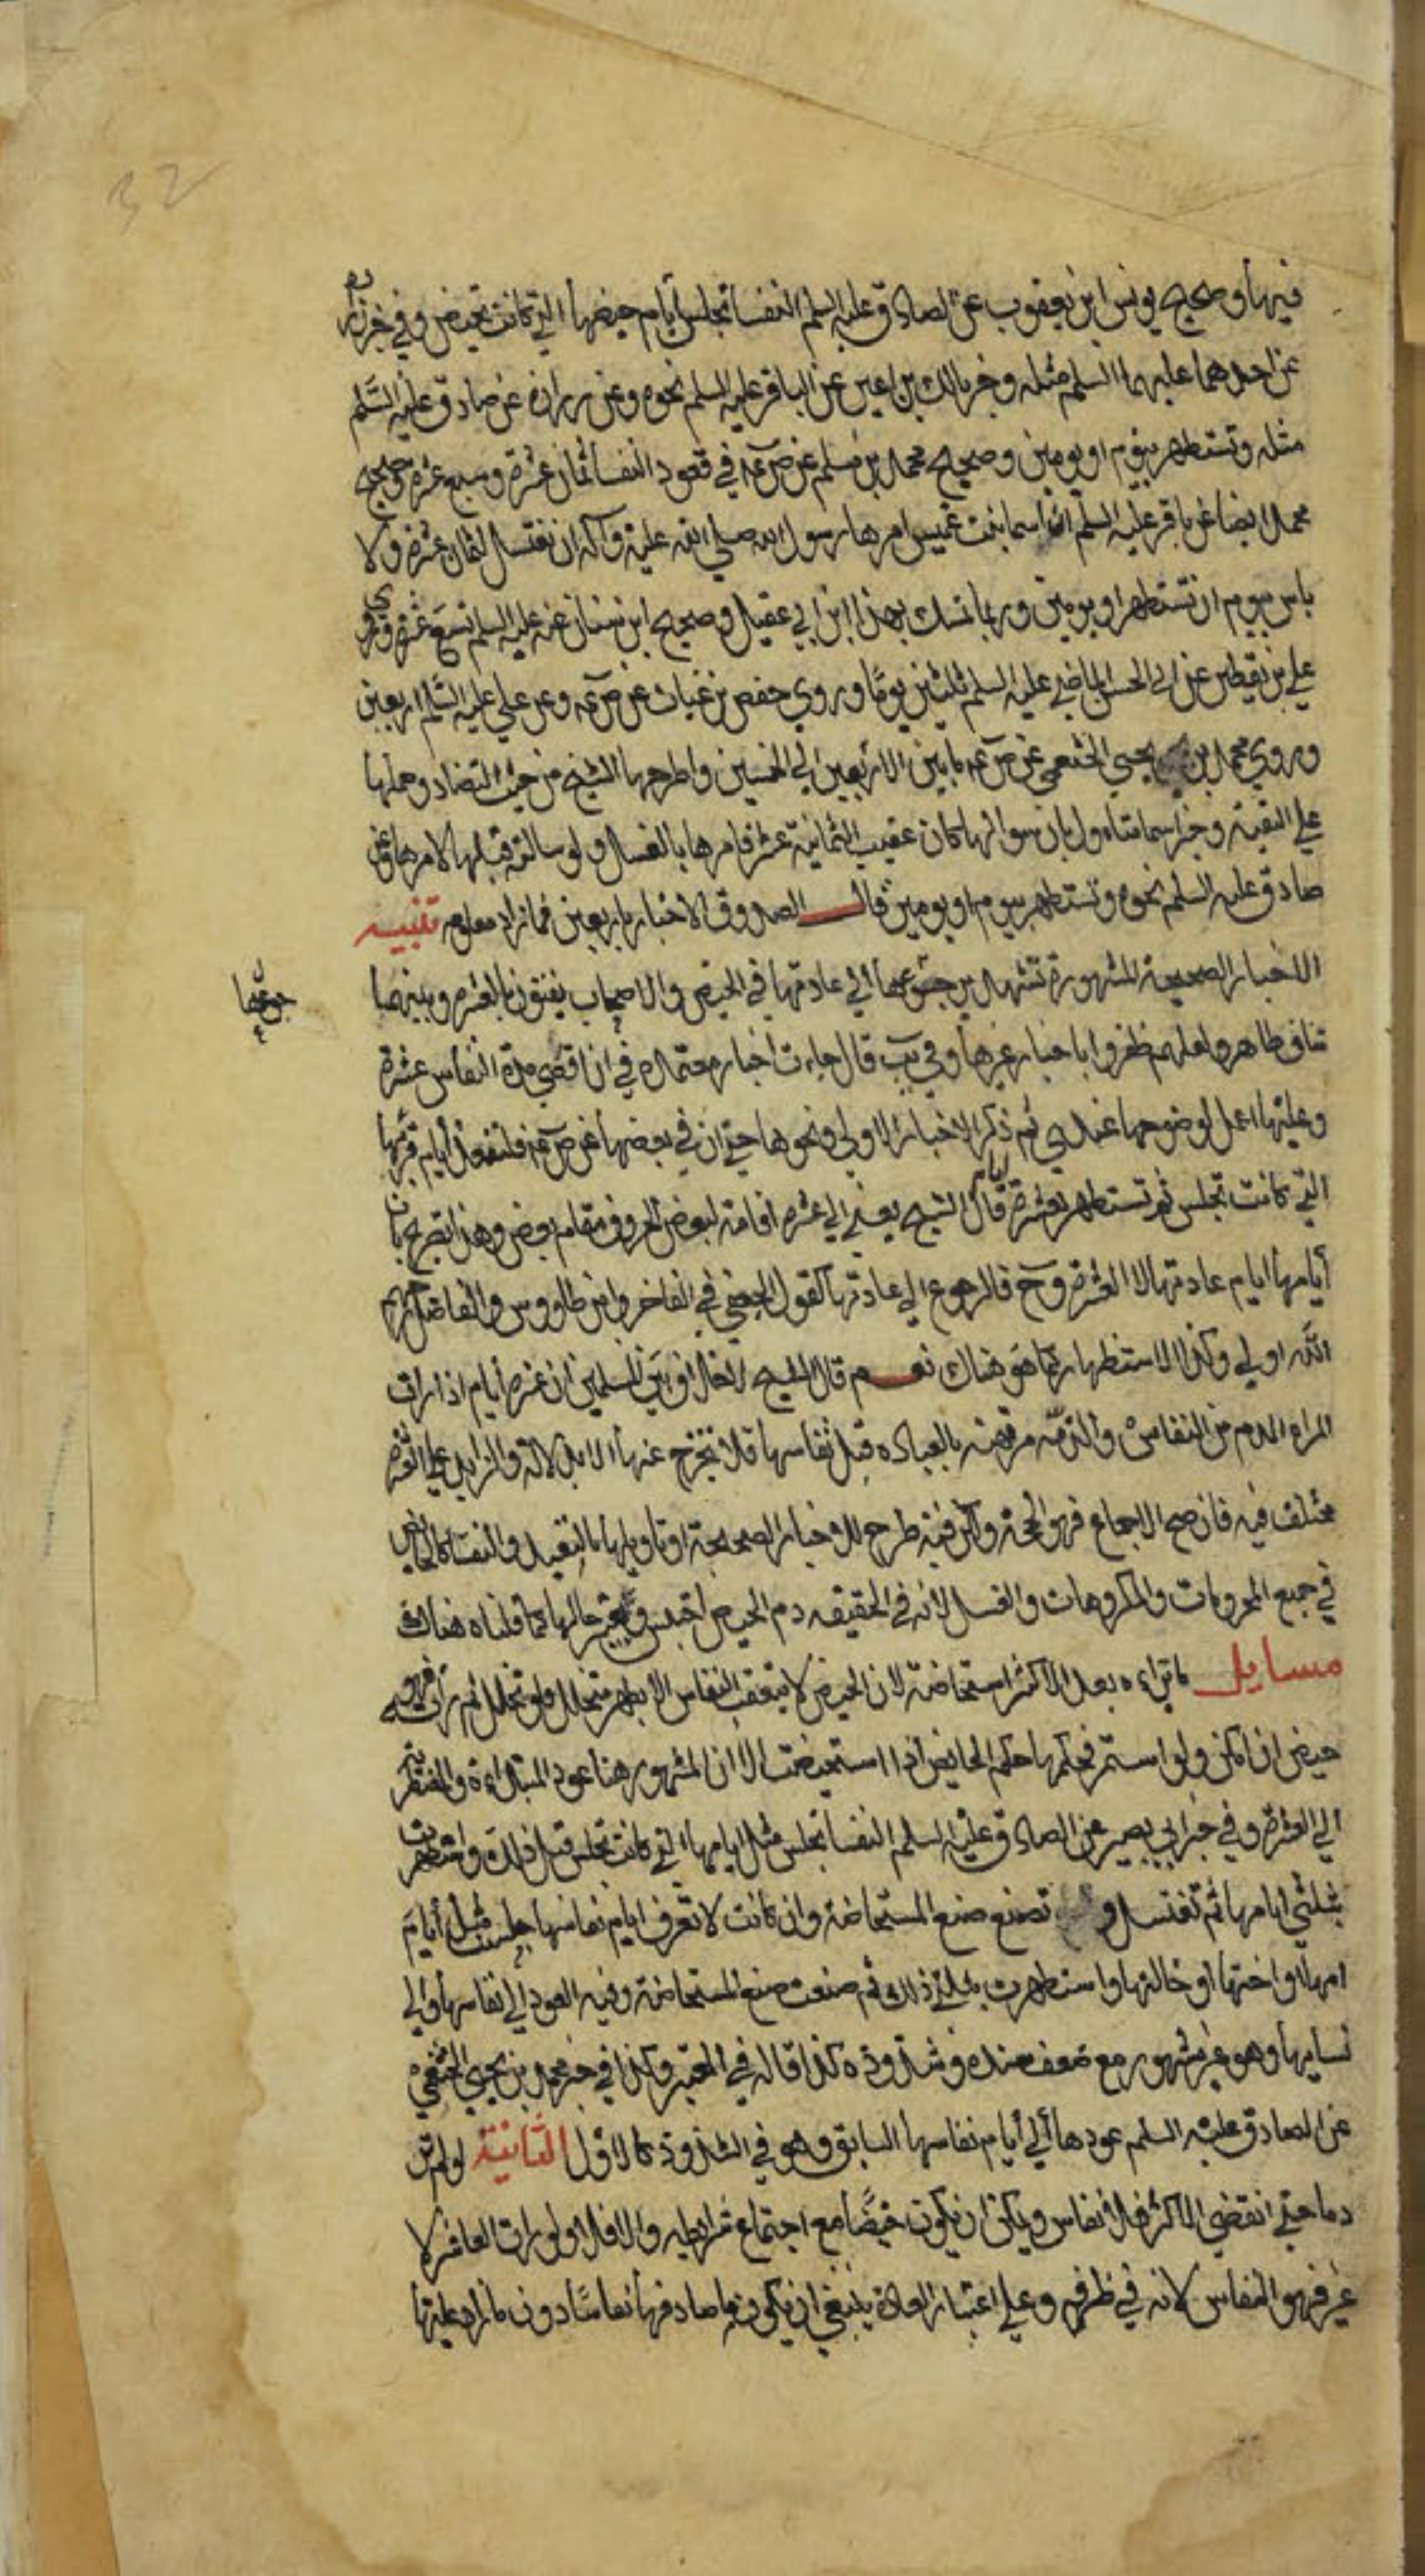 32
فيها وصحيح يونس ابن يعقوب عن الصادق عليه السلم النفسا تجلس أيام حيضها التي كانت تحيض وفي خبر زرارة
عن احدهما عليهما السلم مثله وخبر مالك بن اعين عن الباقر عليه السلم نحوه وعن زرارة عن صادق عليه السلم
مثله وتستظهر بيوم او يومين وصحيح محمد بن مسلم عن ص عه في قعود النفسا ثمان عشرة وسبع عشرة وصحيح
محمد ايضا عن باقر عليه السلم ان اسما بنت عميس امرها رسول الله صلي الله عليه وآله ان تغتسل لثمان عشرة ولا
باس بيوم ان تستظهر او يومين وربما تمسك بهذا ابن ابي عقيل وصحيح ابن سنان عنه عليه السلم تسع عشرة وروي
علي بن يقطين عن ابي الحسن الماضي عليه السلم ثلثين يومًا وروي حفص بن غياث عن ص عه وعن علي عليه السلم اربعين
وروي محمد بن يحيي الخثعمي عن ص عه ما بين الاربعين الي الخمسين واطرحها الشيخ من حيث التضاد وحملها
علي التقية وخبر اسما متاول بان سوالها كان عقيب الثمانية عشر فامرها بالغسل ولو سالته قبلها لامرها وعن
صادق عليه السلم نحوه وتستظهر بيوم او يومين قال الصدوق الاخبار باربعين فما زاد معلوم تنبيه
الاخبار الصحيحة المشهورة تشهد برجوعها الي عادتها في الحيض والاصحاب يفتون بالعشرة وبينهما
رجوعها
تناف ظاهر ولعلهم ظفروا باخبار غيرها وفي يب قال جاءت اخبار معتمدة في ان اقصي مدة النفاس عشرة
وعليها اعمل لوضوحها عندي ثم ذكر الاخبار الاولي ونحوها حتي ان في بعضها عن ص عه فلتقعد أيام قرئها
التي كانت تجلس ثم تستظهر بعشرة أيام قال الشيخ يعني الي عشرة اقامة لبعض الحروف مقام بعض وهذا تصريح بان
أيامها ايام عادتها لا العشرة وح فالرجوع الي عادتها كقول الجعفي في الفاخر وابن طاووس والفاضل رحمهم
الله اولي وكذا الاستظهار كما هو هناك نعم قال الشيخ لا خلاف بين المسلمين ان عشرة أيام اذا رات
المراه الدم من النفاس والذمه مرتهنة بالعباده قبل نفاسها فلا تخرج عنها الا بدلالة والزايد علي العشرة
مختلف فيه فان صح الاجماع فهو الحجة ولكن فيه طرح للاخبار الصحيحة او تاويلها بالبعيد والنفسا كالحايض
في جميع المحرمات والمكروهات والغسل لانه في الحقيقه دم الحيض احتبس ويعتبر حالها كما قلناه هناك
مسايل ما تراءه بعد الاكثر استحاضة لان الحيض لا يتعقب النفاس الا بطهر متخلل ولو تخلل ثم رأت فهو
حيض ان امكن ولو استمر فحكمها حكم الحايض اذا استحيضت الا ان المشهور هنا عود المبتداءة والمضطربة
الي العشرة وفي خبر ابي بصير عن الصادق عليه السلم النفسا تجلس مثل ايامها التي كانت تجلس قبل ذلك واستظهرت
بثلثي ايامها ثم تغتسل و تصنع صنع المستحاضة وان كانت لا تعرف ايام نفاسها جلست مثل أيام
امها او اختها او خالتها واستظهرت بثلثي ذلك ثم صنعت صنع المستحاضة وفيه العود الي نفاسها والي
نسايها وهو غير مشهور مع ضعف سنده وشذوذه كذا قاله في المعتبر وكذا في خبر محمد بن يحيي الخثعمي
عن الصادق عليه السلم عودها ألي أيام نفاسها السابق وهو في الشذوذ كالاول الثانية لو لم تر
دما حتي انقضي الاكثر فلا نفاس ويمكن ان يكون حيضًا مع اجتماع شرايطه والا فلا ولو رات العاشر لا
غير فهو النفاس لانه في ظرفه وعلي اعتبار العادة ينبغي ان يكون ما صادفها نفاسًا دون ما زاد عليها